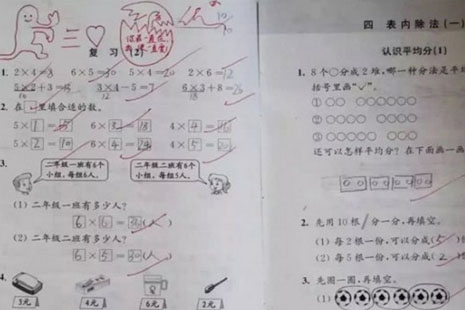 复 习 (2)
1. 2×4=8 6×5=30 5×4=20 2×6=12
5×2+3=13 3×4-5=7 6×3+8=26
2. 在□里填合适的数。
5×1=5 6×3=18 4×4=16
5×2=10 6×4=24 4×5=20
3.
二年级一班有6个
小组,每组6人。
二年级二班有6个
小组,每组5人。
(1) 二年级一班有多少人?
6×6=36(人)
(2) 二年级二班有多少人?
6×5=30(人)
4.
3元 4元 6元 2元
四 表内除法(一)
认识平均分(1)
1. 8个○分成2堆,哪一种分法是平均
括号里画"✓"。
①
②
③
还可以怎样平均分?在下面画一画
2. 先用10根 分一分,再填空。
(1) 每2根一份,可以分成(5)
(2) 每5根一份,可以分成(2)
3. 先圈一圈,再填空。
(1)